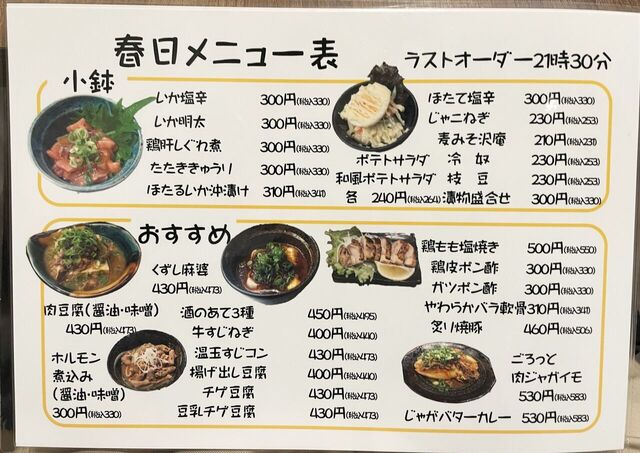 春日メニュー表
ラストオーダー21時30分
小鉢
いか塩辛 300円(税込330)
いか明太 300円(税込330)
鶏肝しぐれ煮 300円(税込330)
たたききゅうり 300円(税込330)
ほたるいか沖漬け 310円(税込341)
ほたて塩辛 300円(税込330)
じゃこねぎ 230円(税込253)
麦みそ沢庵 210円(税込231)
冷 奴 230円(税込253)
枝 豆 230円(税込253)
漬物盛合せ 300円(税込330)
ポテトサラダ
和風ポテトサラダ
各 240円(税込264)
おすすめ
くずし麻婆
430円(税込473)
肉豆腐(醤油・味噌)
430円(税込473)
ホルモン
煮込み
(醤油・味噌)
300円(税込330)
酒のあて3種 450円(税込495)
牛すじねぎ 400円(税込440)
温玉すじコン 430円(税込473)
揚げ出し豆腐 400円(税込440)
チゲ豆腐 430円(税込473)
豆乳チゲ豆腐 430円(税込473)
鶏もも塩焼き 500円(税込550)
鶏皮ポン酢 300円(税込330)
ガツポン酢 300円(税込330)
やわらかバラ軟骨 310円(税込341)
炙り焼豚 460円(税込506)
ごろっと
肉ジャガイモ
530円(税込583)
じゃがバターカレー 530円(税込583)